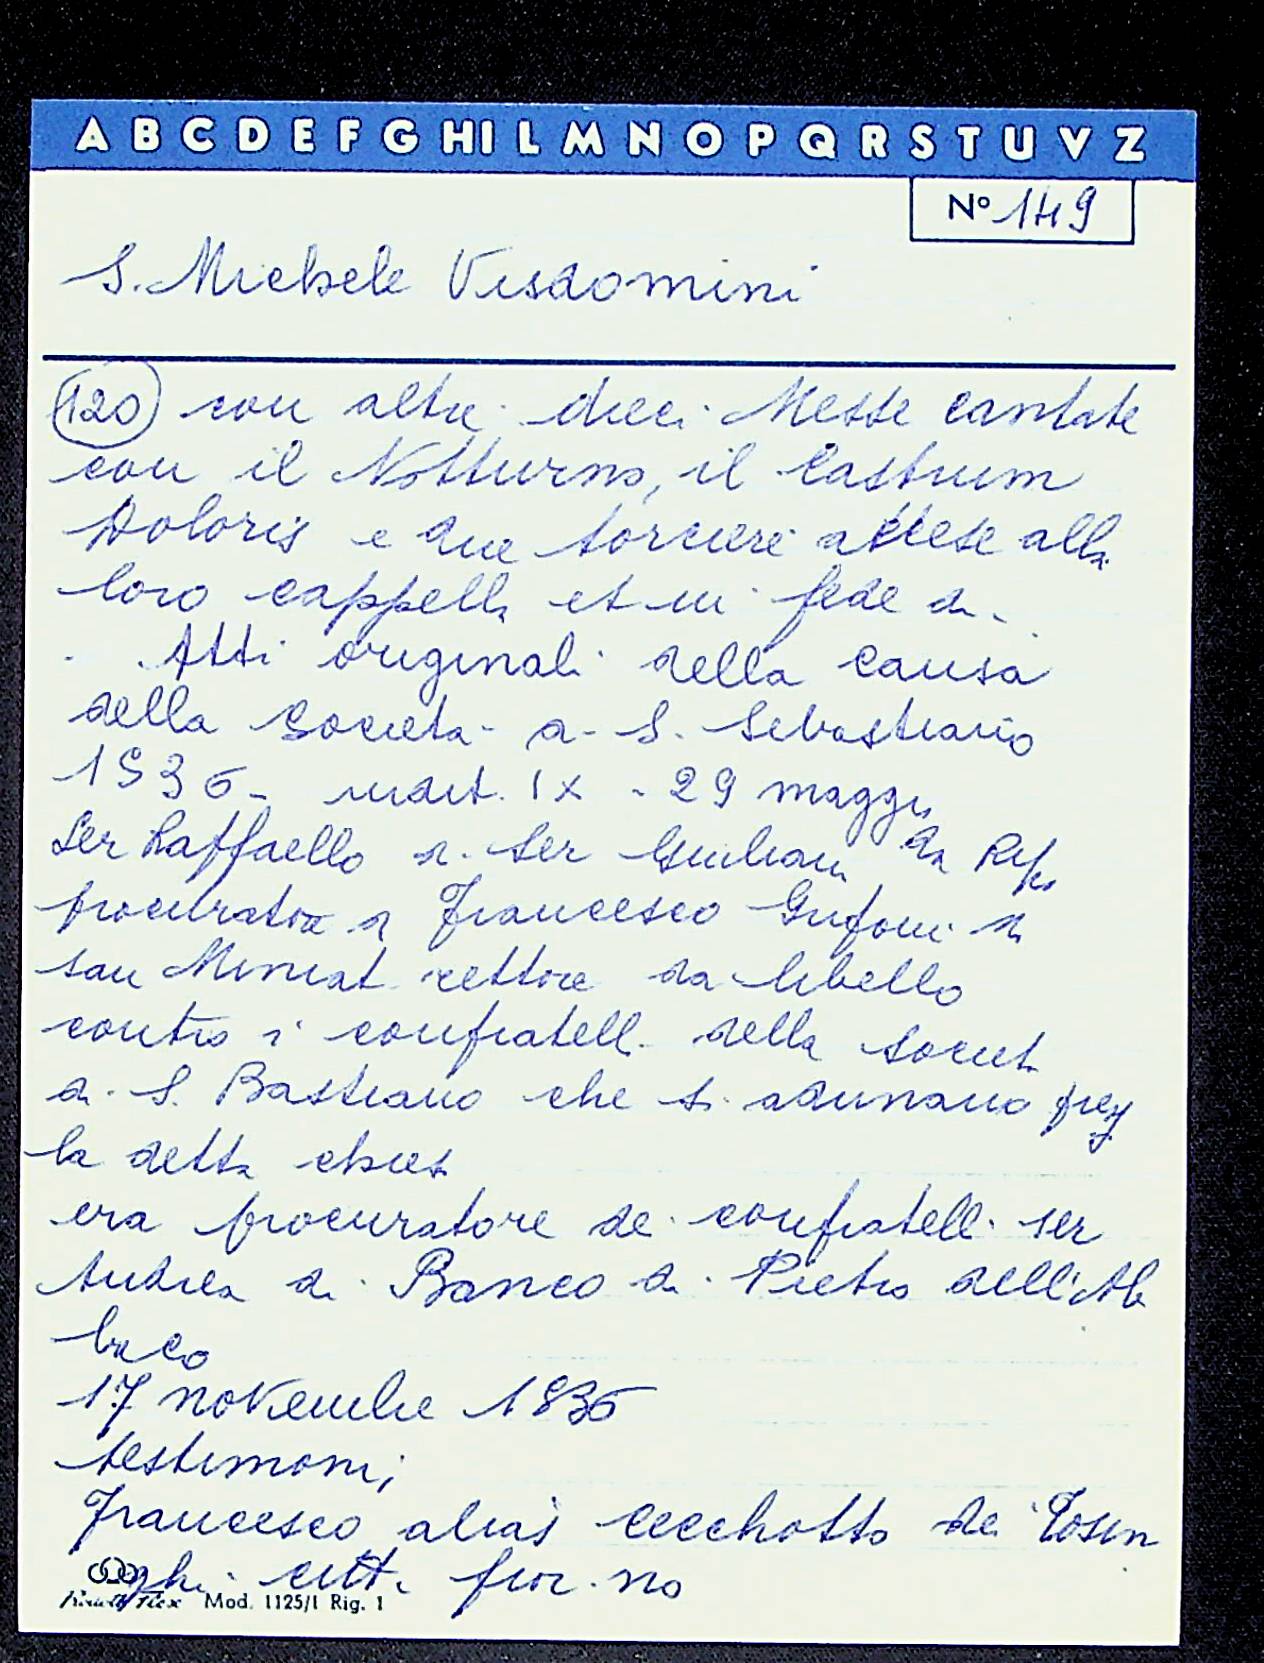 A B C D E F G H I L M N O P Q R S T U V Z
N° 149
S. Michele Visdomini
(120) con altre dieci Messe cantate
con il Notturno, il Castrum
Doloris e due torciere accese alla
loro cappella et in fede di
Atti originali della causa
della Società di S. Sebastiano
1536 indit. IX - 29 maggio
Ser Raffaello di Ser Giuliano da
procuratore di Francesco Gufoni di
san Miniat. rettore da libello
contro i confratelli della societ
di S. Bastiano che si adunano
la detta chies
era procuratore de confratelli ser
Andrea di Banco di Pietro dell'Ab
baco
17 novembre 1536
testimoni
Francesco alias Cecchotto de Tosin
ghi citt. fior. no
Mod. 1125/1 Rig. 1